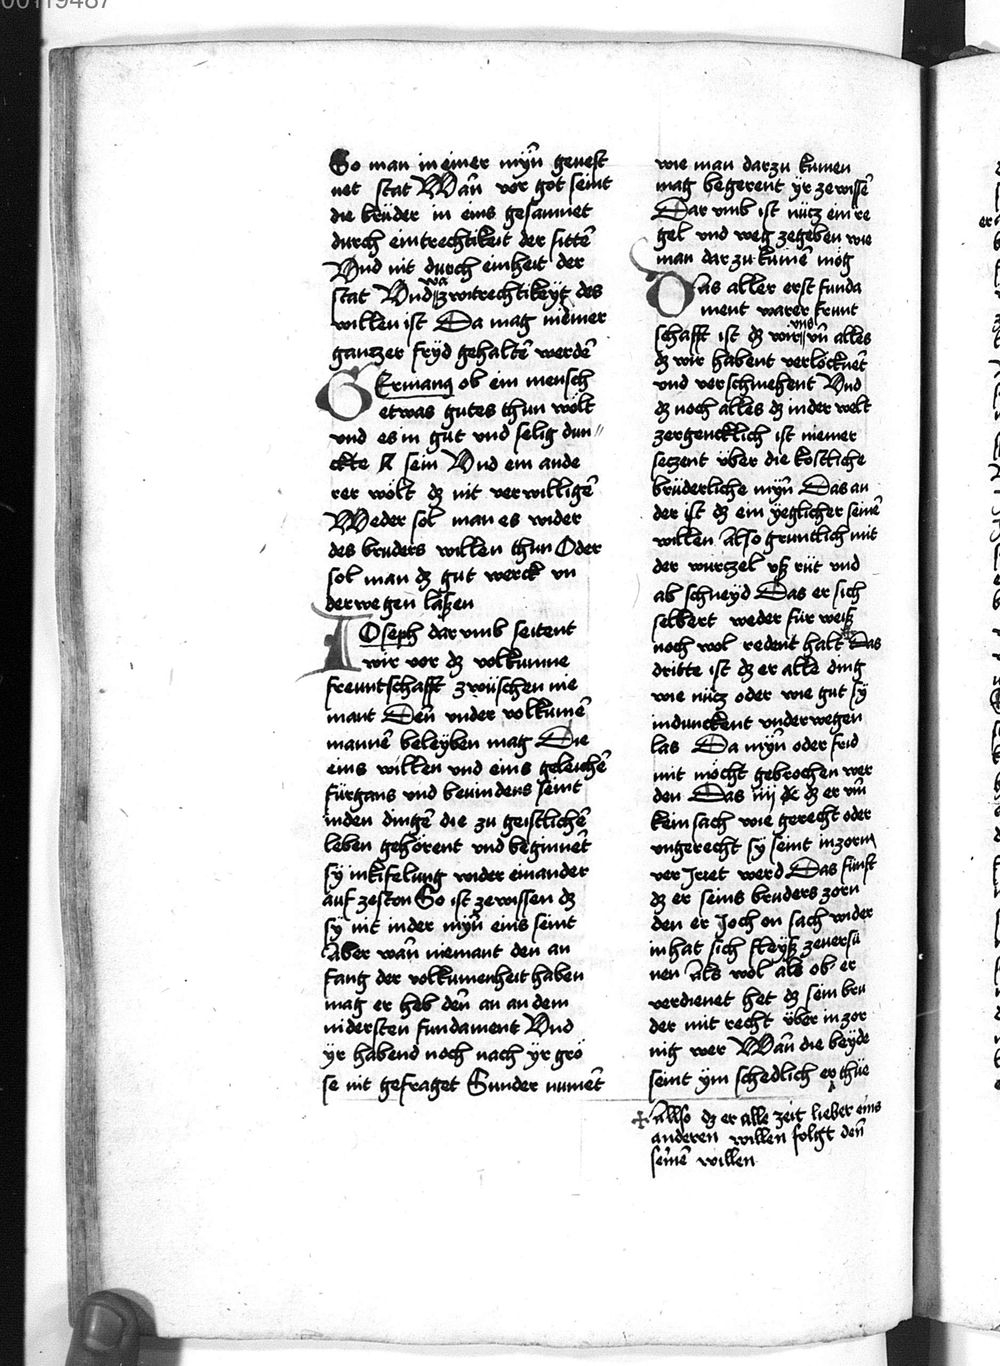 00119487
So man in einer mẏn̄ gevest
net stat Wañ vor got seint
die brüder in eins gesamnet
durch eintrechtikeit der sittē
Vnd nit durch einheit der
stat Vnd wa zwitrechtikeÿt des
willen ist Da mag niemer
gantzer frÿd gehaltē werdē
GErmang ob ein mensch
etwas gutes thun wölt
vnd es in gut vnd selig dun„
ckte sein Vnd ein ande
rer wölt dz nit verwilligē
Weder sol man es wider
des bruders willen thun Oder
sol man dz gut werck vn
derwegen laßen
IOseph dar vmb seitent
wir vor dz volkumne
freuntschafft zwüschen nie
mant Deñ vnder volkumē
mannē beleÿben mag Die
eins willen vnd eins geleichē
fürgans vnd bevindens seint
inden dingē die zu geistlichē
leben gehörent vnd beginnēt
sÿ inkifelung wider einander
auf zeston So ist zewissen dz
sÿ nit inder mẏn̄ eins seint
Aber wañ niemant den an
fang der volkumenheit haben
mag er heb deñ an an dem
nidersten fundament Vnd
ÿr habend noch nach ÿr grö
se nit gefraget Sunder numēt
wie man darzu kumen
mag begerent ÿr zewissē
Dar vmb ist nücz ein re
gel vnd weg zegeben wie
man dar zu kumē mög
Das aller erst funda
ment warer frunt
schafft ist dz wir vnd vñ alles
dz wir habent verlöcknēt
vnd verschmehent Vnd
dz noch alles dz inder welt
zergencklich ist niemer
seczent über die kostliche
brüderliche mẏn̄ Das an
der ist dz ein ÿeglicher seinē
willen also gruntlich mit
der wurczel vß rüt vnd
ab schneÿd Das er sich
selbert weder für weiß
noch wol redent halt Das
dritte ist dz er alle ding
wie nücz oder wie gut sÿ
in dunckent vnderwegen
las Da mẏn̄ oder frid
mit möcht gebrochen wer
den Das iiij dz er vm̄
kein sach wie gerecht oder
vngerecht sÿ seint inzorn
ver Irret werd Das fünft
dz er seins bruders zorn
den er Joch on sach wider
in hat sich fleÿß zeuersü
nen Als wol als ob er
verdienet het dz sein bru
der mit recht über in zor
nig wer Wañ die beÿde
seint ÿm schedlich er thüe
✢ Allso dz er alle zeit lieber eins
anderen willen folgt den̄
seinē willen